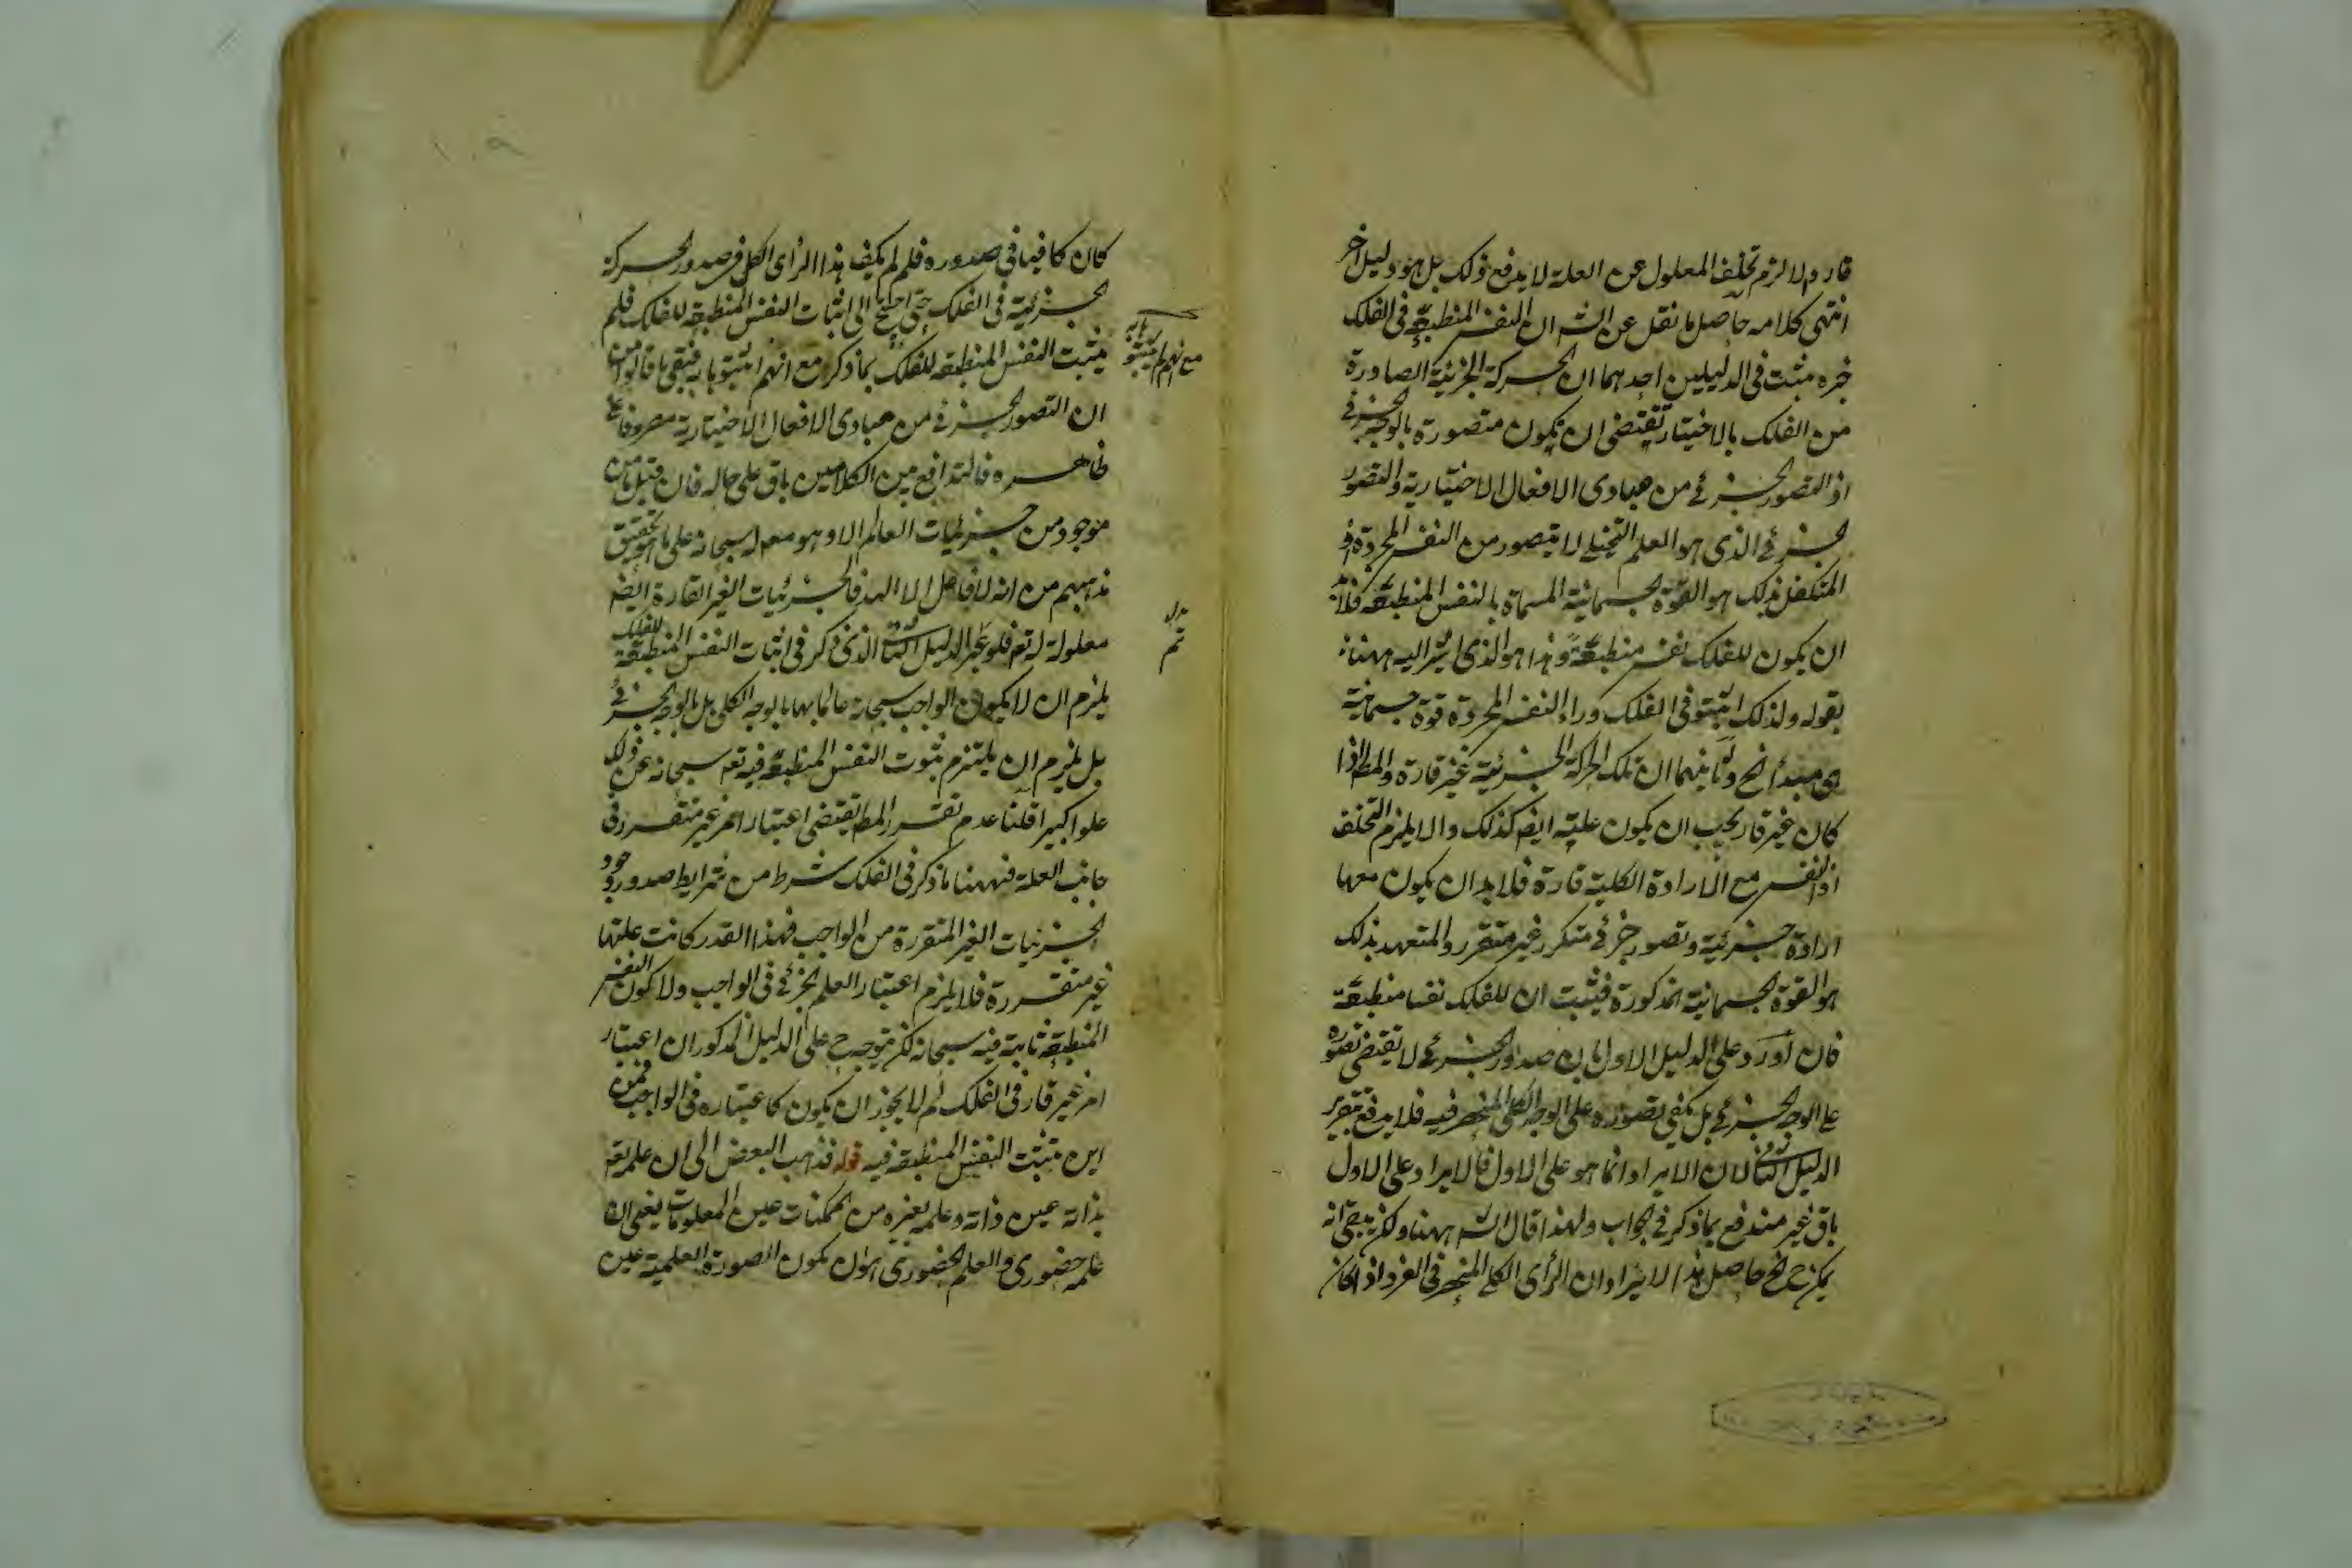 قار والا لزم تخلف المعلول عن العلة لا يدفع ذلك بل هو دليل آخر
انتهى كلامه حاصل ما نقل عن الشـ ان النفس المنطبعة في الفلك
مثبت في الدليلين احدهما ان الحركة الجزئية الصادرة
من الفلك بالاختيار تقتضى ان يكون متصورة بالوجه الجزئى
اذ التصور الجزئى من مبادى الافعال الاختيارية والتصور
الجزئى الذى هو العلم التخيلى لا يتصور من النفس المجردة اذ
المتكفل بذلك هو القوة الجسمانية المسماة بالنفس المنطبعة فلابد
ان يكون للفلك نفس منطبعة وهذا هو الذى اشير اليه ههنا
بقوله ولذلك اثبتو فى الفلك وراء النفس المجردة قوة جسمانية
هى مبدأ الخ وثانيهما ان تلك الحركة الجزئية غير قارة والمط اذا
كان غير قار يجب ان يكون علته ايضا كذلك والا يلزم التخلف
اذ النفس مع الارادة الكلية قارة فلا بد ان يكون معها
ارادة جزئية وتصور جزئى متكرر غير متقرر والمتعهد بذلك
هو القوة الجسمانية المذكورة فيثبت ان للفلك نفسا منطبعة
فان اورد على الدليل الاول بان صدور الجزئى لا تقتضى تصوره
على الوجه الجزئى بل يكفى تصوره على الوجه الكلى المنحصر فيه فلا يدفع بتقرير
الدليل الثانى لان الايراد انما هو على الاول فالايراد على الاول
باق غير مندفع بما ذكر فى الجواب ولهذا قال الشـ ههنا ولكن يتجه انه
يمكن ح الخ حاصل هذا الايراد ان الرأى الكلى المنحصر فى الفرد اذا كان
كان كافيا فى صدوره فلم لم يكف هذا الرأى الكلى فى صدور الحركة
الجزئية فى الفلك حتى احتيج الى اثبات النفس المنطبعة للفلك فلم
يثبت النفس المنطبعة للفلك بما ذكر مع انهم اثبتوا به فبقى ما قالوا من
ان التصور الجزئى من مبادى الافعال الاختيارية مصروفا على
ظاهره فالتدافع بين الكلامين باق على حاله فان قيل ما من
موجود من جزئيات العالم الا وهو معلول له سبحانه على ما هو تحقيق
مذهبهم من انه لا فاعل الا الله فالجزئيات الغير القارة ايضا
معلولة له تع فلو تم الدليل الثانى الذى ذكر فى اثبات النفس المنطبعة للفلك
يلزم ان لا يكون الواجب سبحانه عالما بها بالوجه الكلى بل بالوجه الجزئى
بل يلزم ان يلتزم ثبوت النفس المنطبعة فيه تع سبحانه عن ذلك
علوا كبيرا قلنا عدم تقرر المط يقتضى اعتبار امر غير متقرر فى
جانب العلة فههنا ما ذكر فى الفلك شرط من شرايط صدور وجود
الجزئيات الغير المتقررة من الواجب فبهذا القدر كانت علتها
غير متقررة فلا يلزم اعتبار العلم الجزئى فى الواجب ولا كون النفس
المنطبعة ثابتة فيه سبحانه لكن يتوجه ح على الدليل المذكور ان اعتبار
امر غير قار فى الفلك لم لا يجوز ان يكون كاعتباره فى الواجب فمن
اين تثبت النفس المنطبعة فيه قوله فذهب البعض الى ان علمه تع
بذاته عين ذاته وعلمه بغيره من الممكنات عين المعلومات يعنى ان
علمه حضورى والعلم الحضورى هو ان يكون الصورة العلمية عين